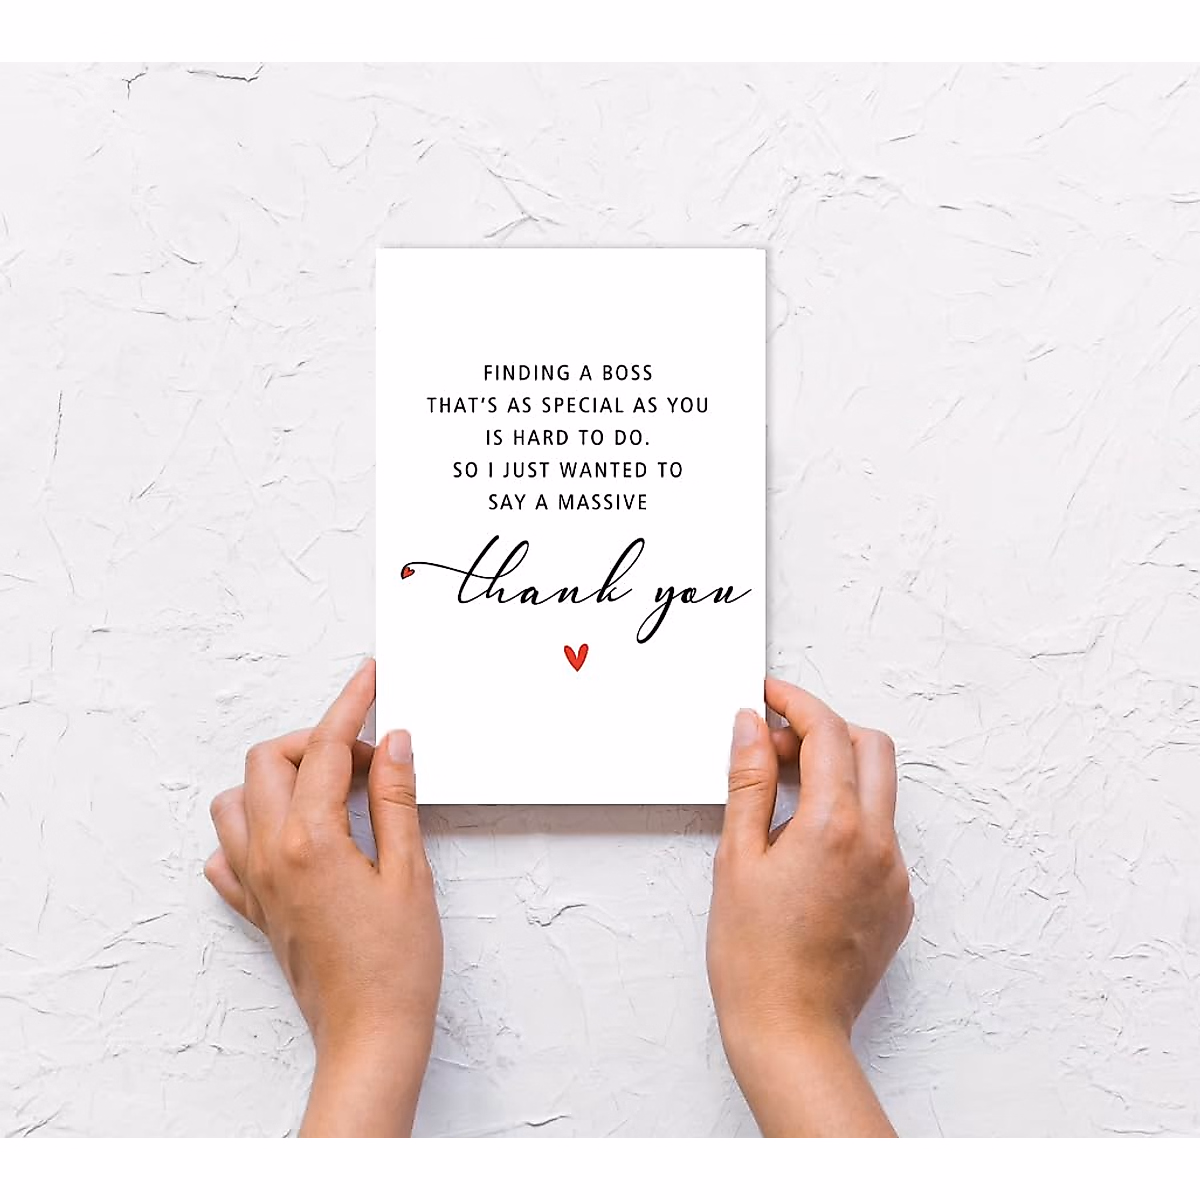 FINDING A BOSS
THAT'S AS SPECIAL AS YOU
IS HARD TO DO.
SO I JUST WANTED TO
SAY A MASSIVE
thank you